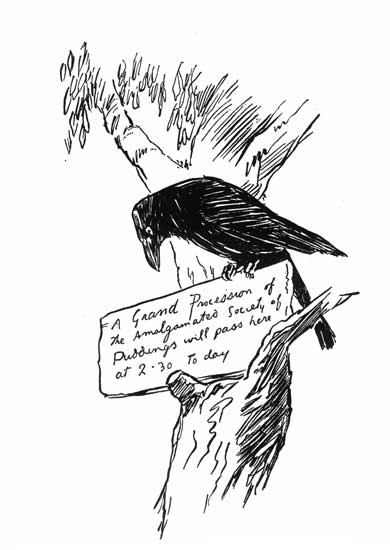 A Grand Procession of
the Amalgamated Society of
Puddings will pass here
at 2.30 to day